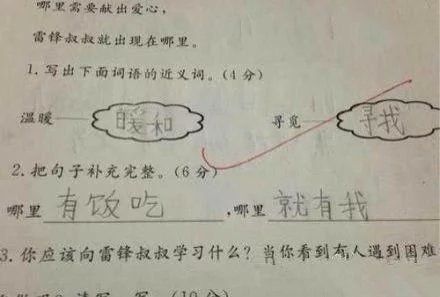 哪里需要献出爱心，
雷锋叔叔就出现在哪里。
1.写出下面词语的近义词。(4分)
温暖 暖和 寻觅 寻找
2.把句子补充完整。(6分)
哪里 有饭吃 ,哪里 就有我
3.你应该向雷锋叔叔学习什么？当你看到有人遇到困难